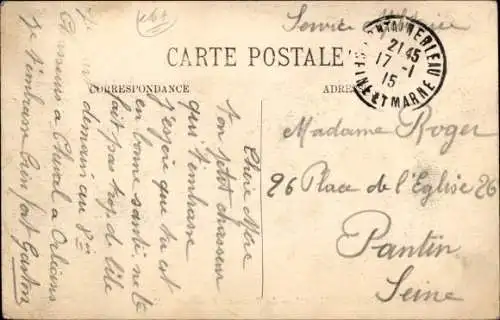 Service Militaire
CARTE POSTALE
CORRESPONDANCE
ADRES
FONTAINEBLEAU
21 45
17 -1
15
SEINE ET MARNE
Madame Roger
26 Place de l'Eglise 26
Pantin
Seine
Chère Mère
ton petit chasseur
qui t'embrasse
j'espère que tu est
en bonne santé, ne te
fait pas trop de bile
demain au 8è
Chasseurs à Cheval à Orléans
Je t'embrasse bien fort Gaston